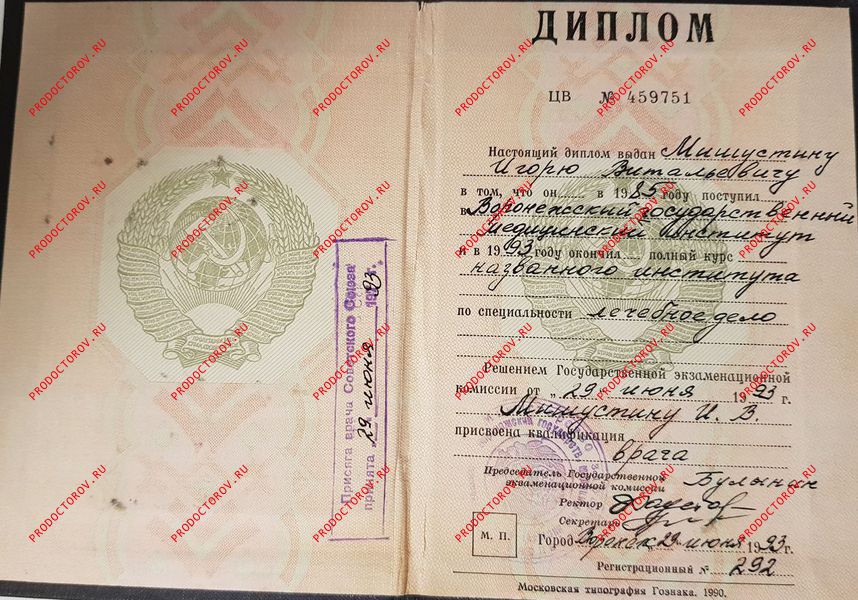 Присяга врача Советского Союза
принята „29 июня 1993 г.
ДИПЛОМ
ЦВ № 459751
Настоящий диплом выдан Мишустину
Игорю Витальевичу
в том, что он в 1985 году поступил
в Воронежский государственный
медицинский институт
и в 1993 году окончил полный курс
названного института
по специальности лечебное дело
Решением Государственной экзаменационной
комиссии от „29 июня 1993 г.
Мишустину И. В.
присвоена квалификация
врача
Председатель Государственной
экзаменационной комиссии Булынин
Ректор
Секретарь
М. П.
Город Воронеж, 29 июня 1993 г.
Регистрационный № 292
Московская типография Гознака. 1990.
PRODOCTOROV.RU